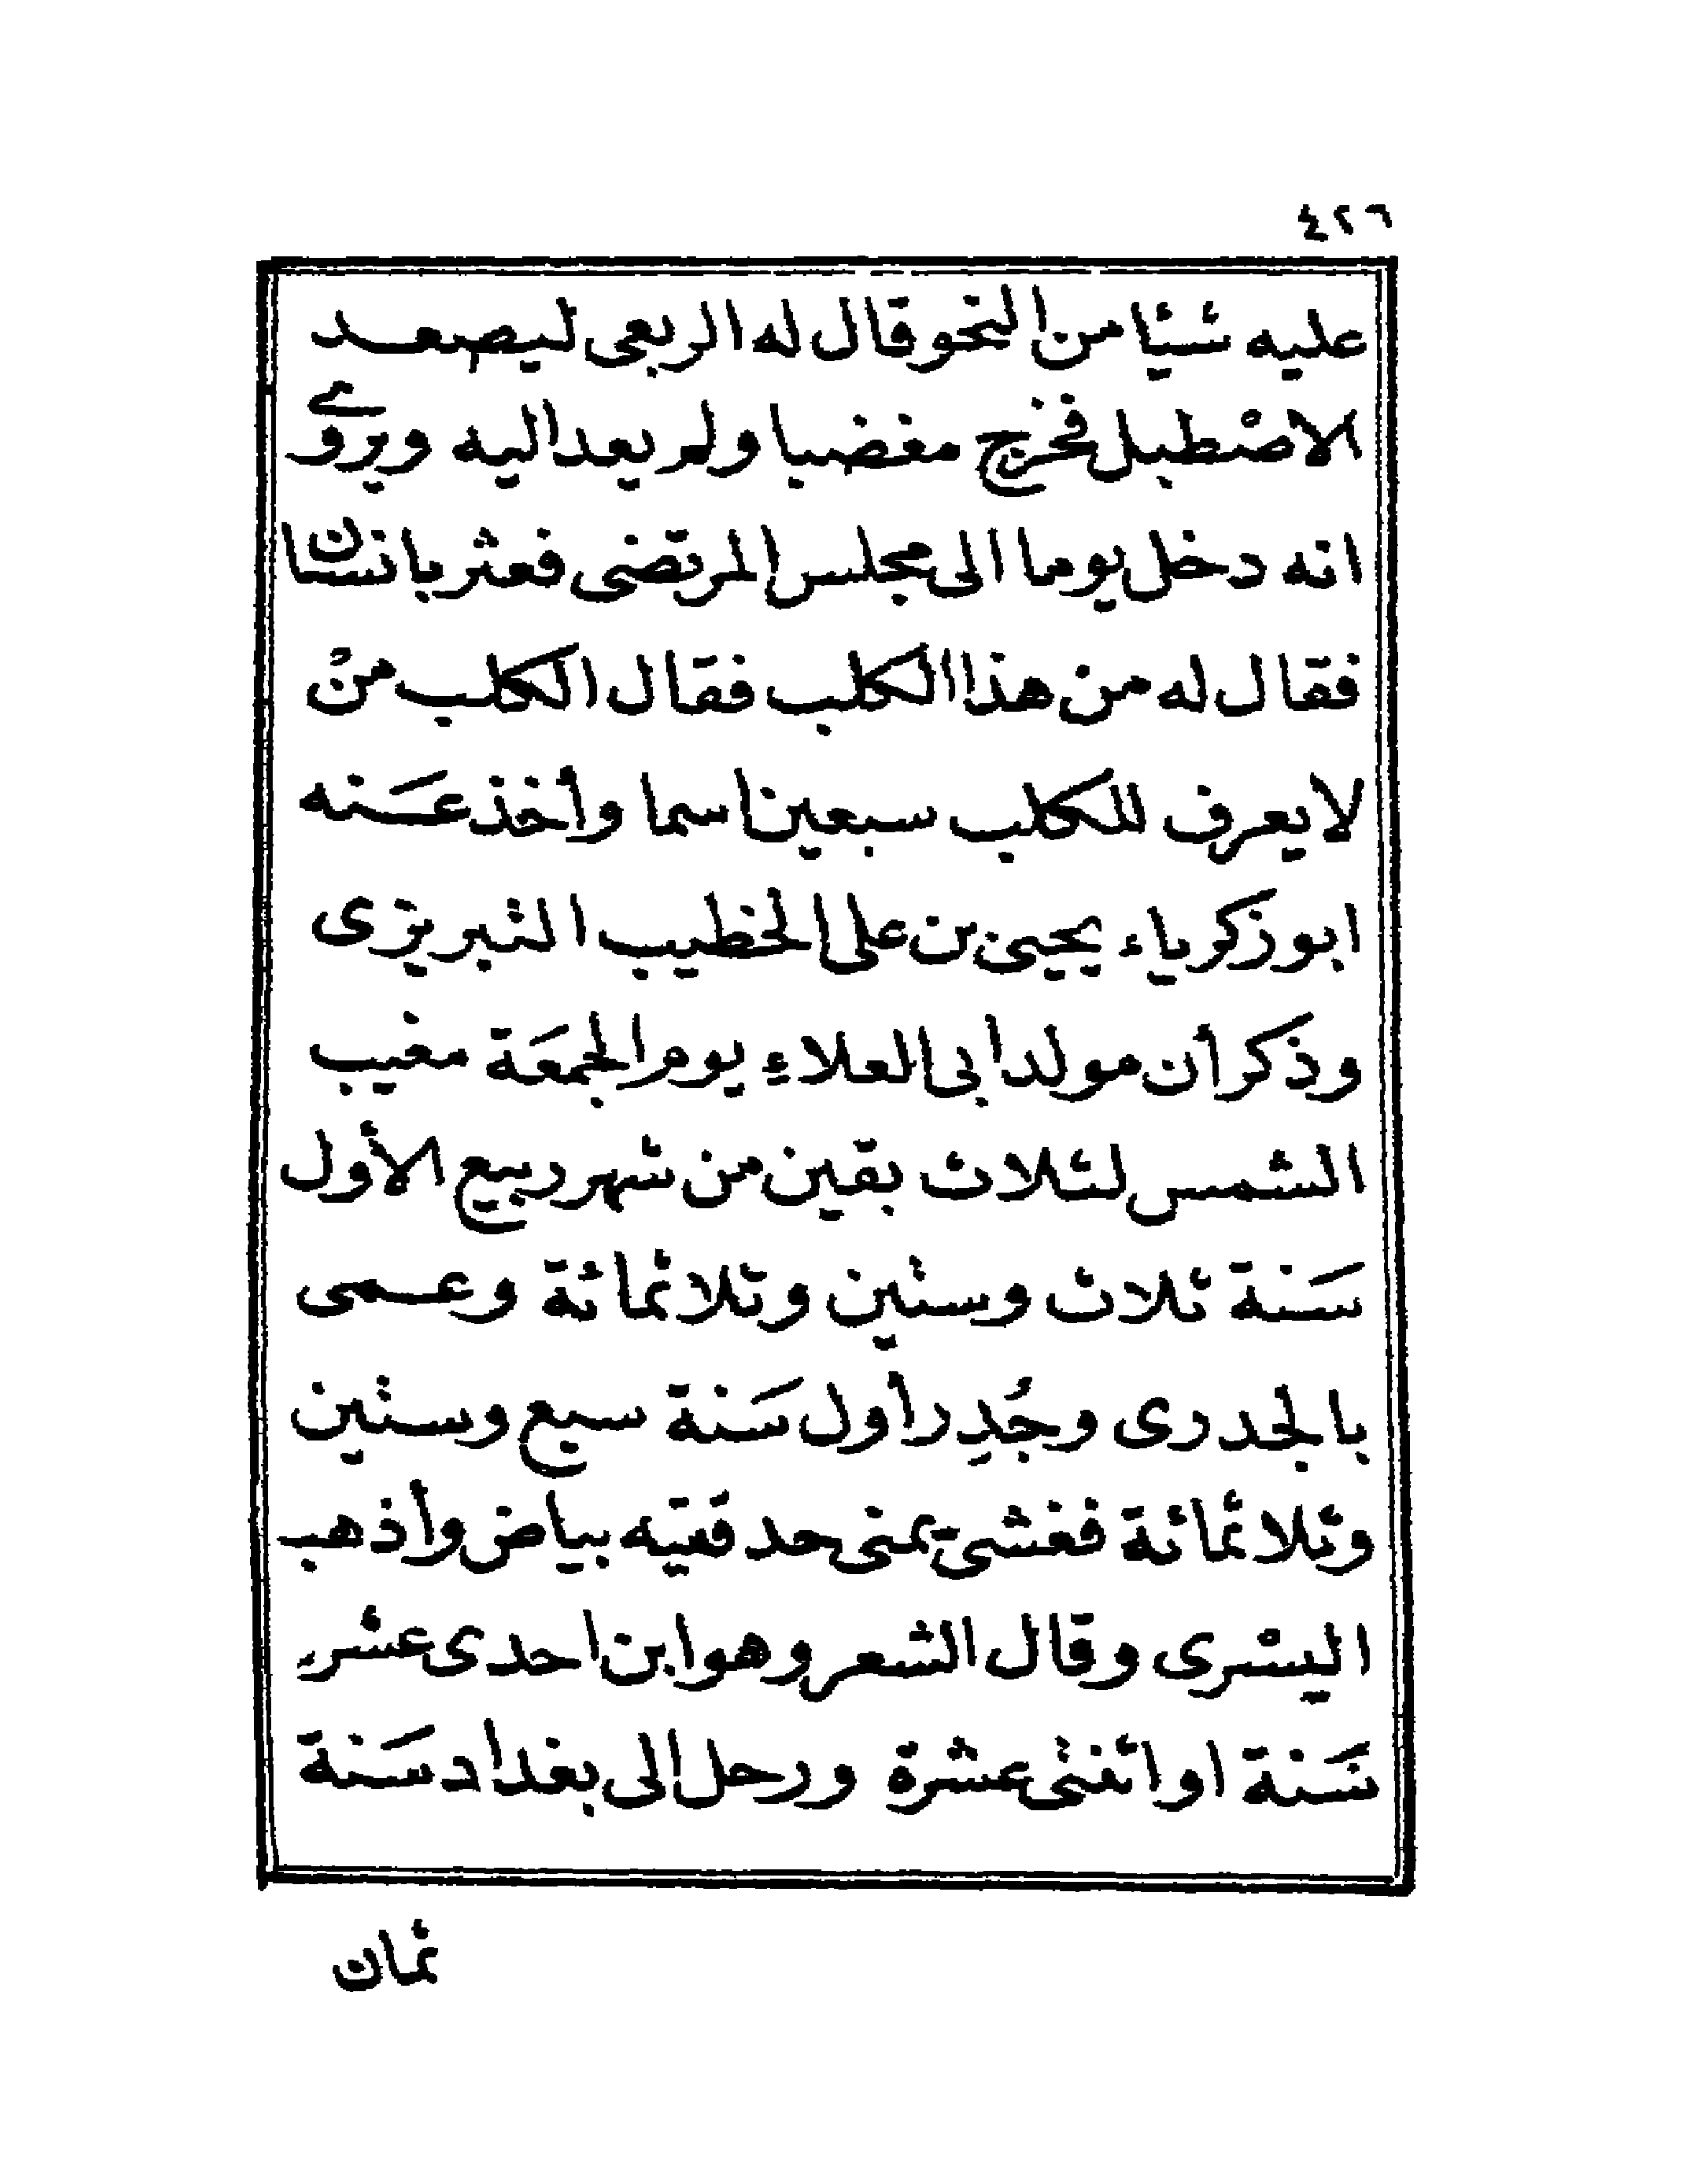 ٤٢٦
عليه شيئا من النحو قال له الربعى ليصعد
الاصْطبل فخرج مغضبا ولم يعد اليه ويروى
انه دخل يوما الى مجلس المرتضى فعثر بانسان
فقال له من هذا الكلب فقال الكلب منْ
لا يعرف للكلب سبعين اسما وأخذ عَنه
ابو زكرياء يحيى بن على الخطيب التبريزى
وذكر أن مولد ابى العلاءِ يوم الجمعَة مغيب
الشمس لثلاث بقين من شهر ربيع الأول
سَنة ثلاث وستين وثلاثمائة وعمى
بالجدرى وجُدِر أول سَنة سبع وستين
وثلاثمائة فغشى يمنى حدقتيه بياض وأذهب
اليسْرى وقال الشعر وهو ابن احدى عشر
سَنة او اثنتى عشرة ورحل الى بغداد سَنة
ثمان